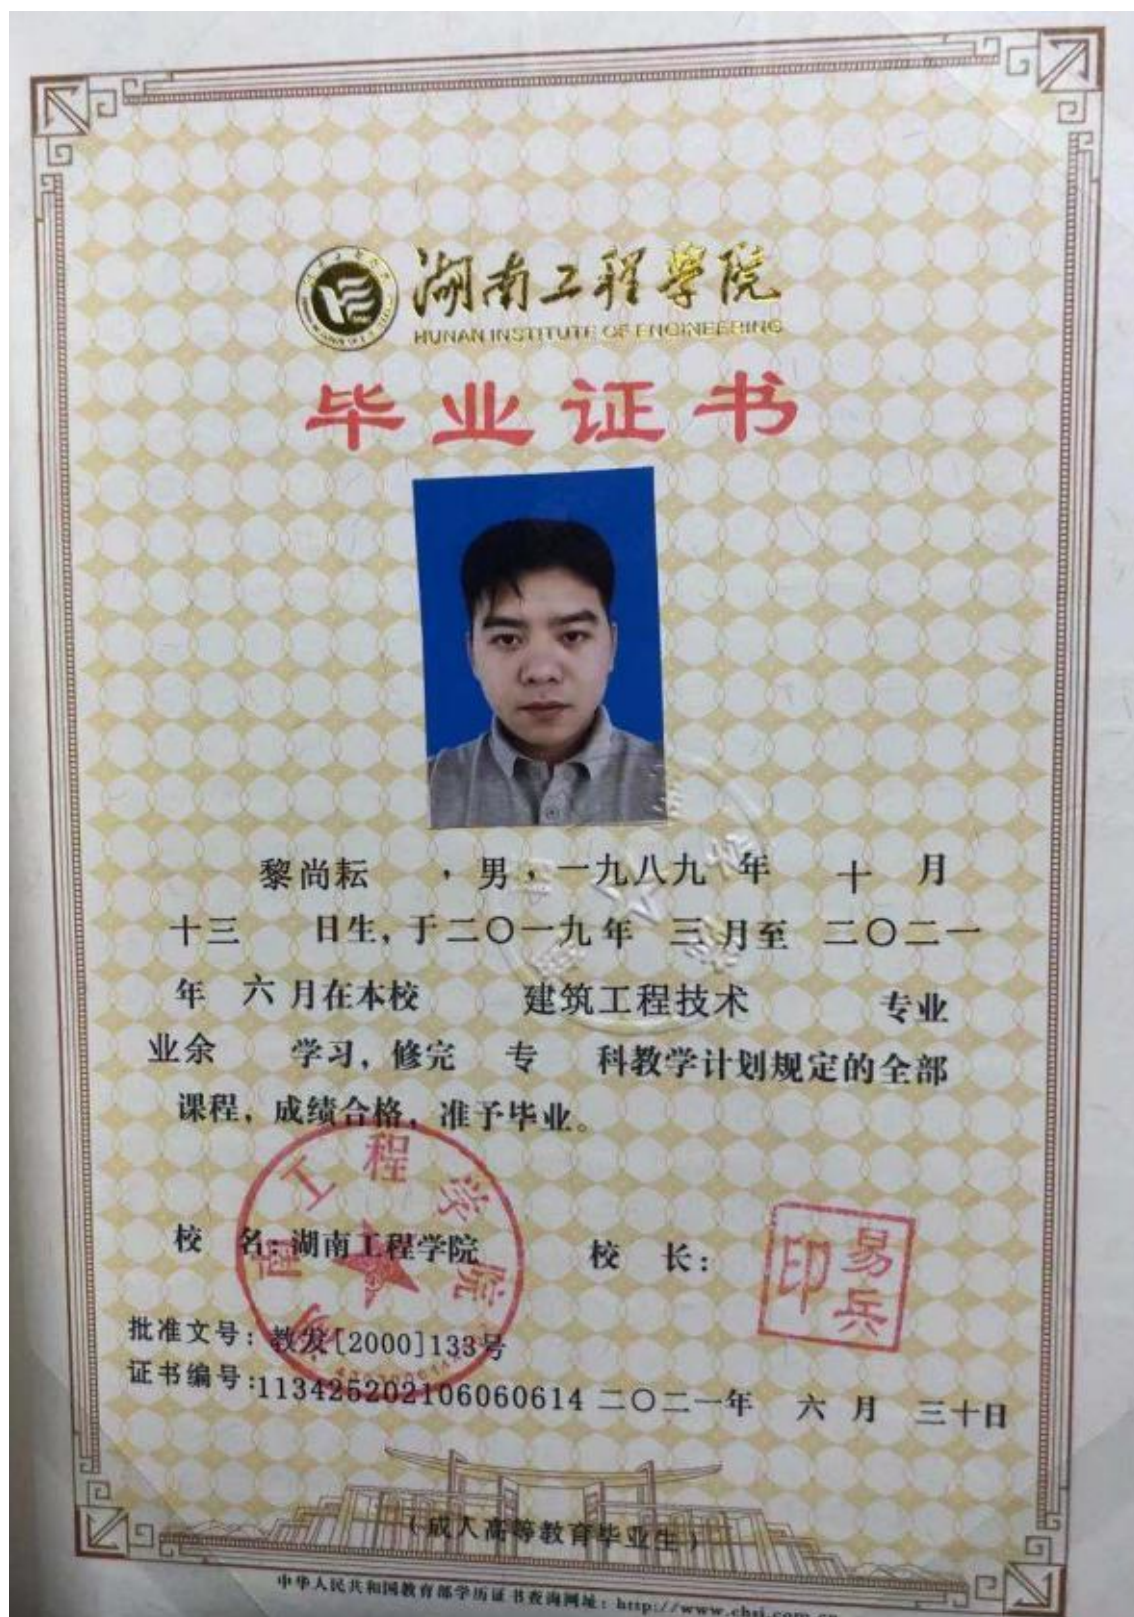 湖南工程学院
HUNAN INSTITUTE OF ENGINEERING
毕业证书
黎尚耘 ，男，一九八九 年 十 月
十三 日生，于二〇一九年 三 月至 二〇二一
年 六 月在本校 建筑工程技术 专业
业余 学习，修完 专 科教学计划规定的全部
课程，成绩合格，准予毕业。
工程学院
校 名：湖南工程学院 校 长：
易兵印
批准文号：教发[2000]133号
证书编号:113425202106060614 二〇二一年 六 月 三十日
（成人高等教育毕业生）
中华人民共和国教育部学历证书查询网址：http://www.chsi.com.cn